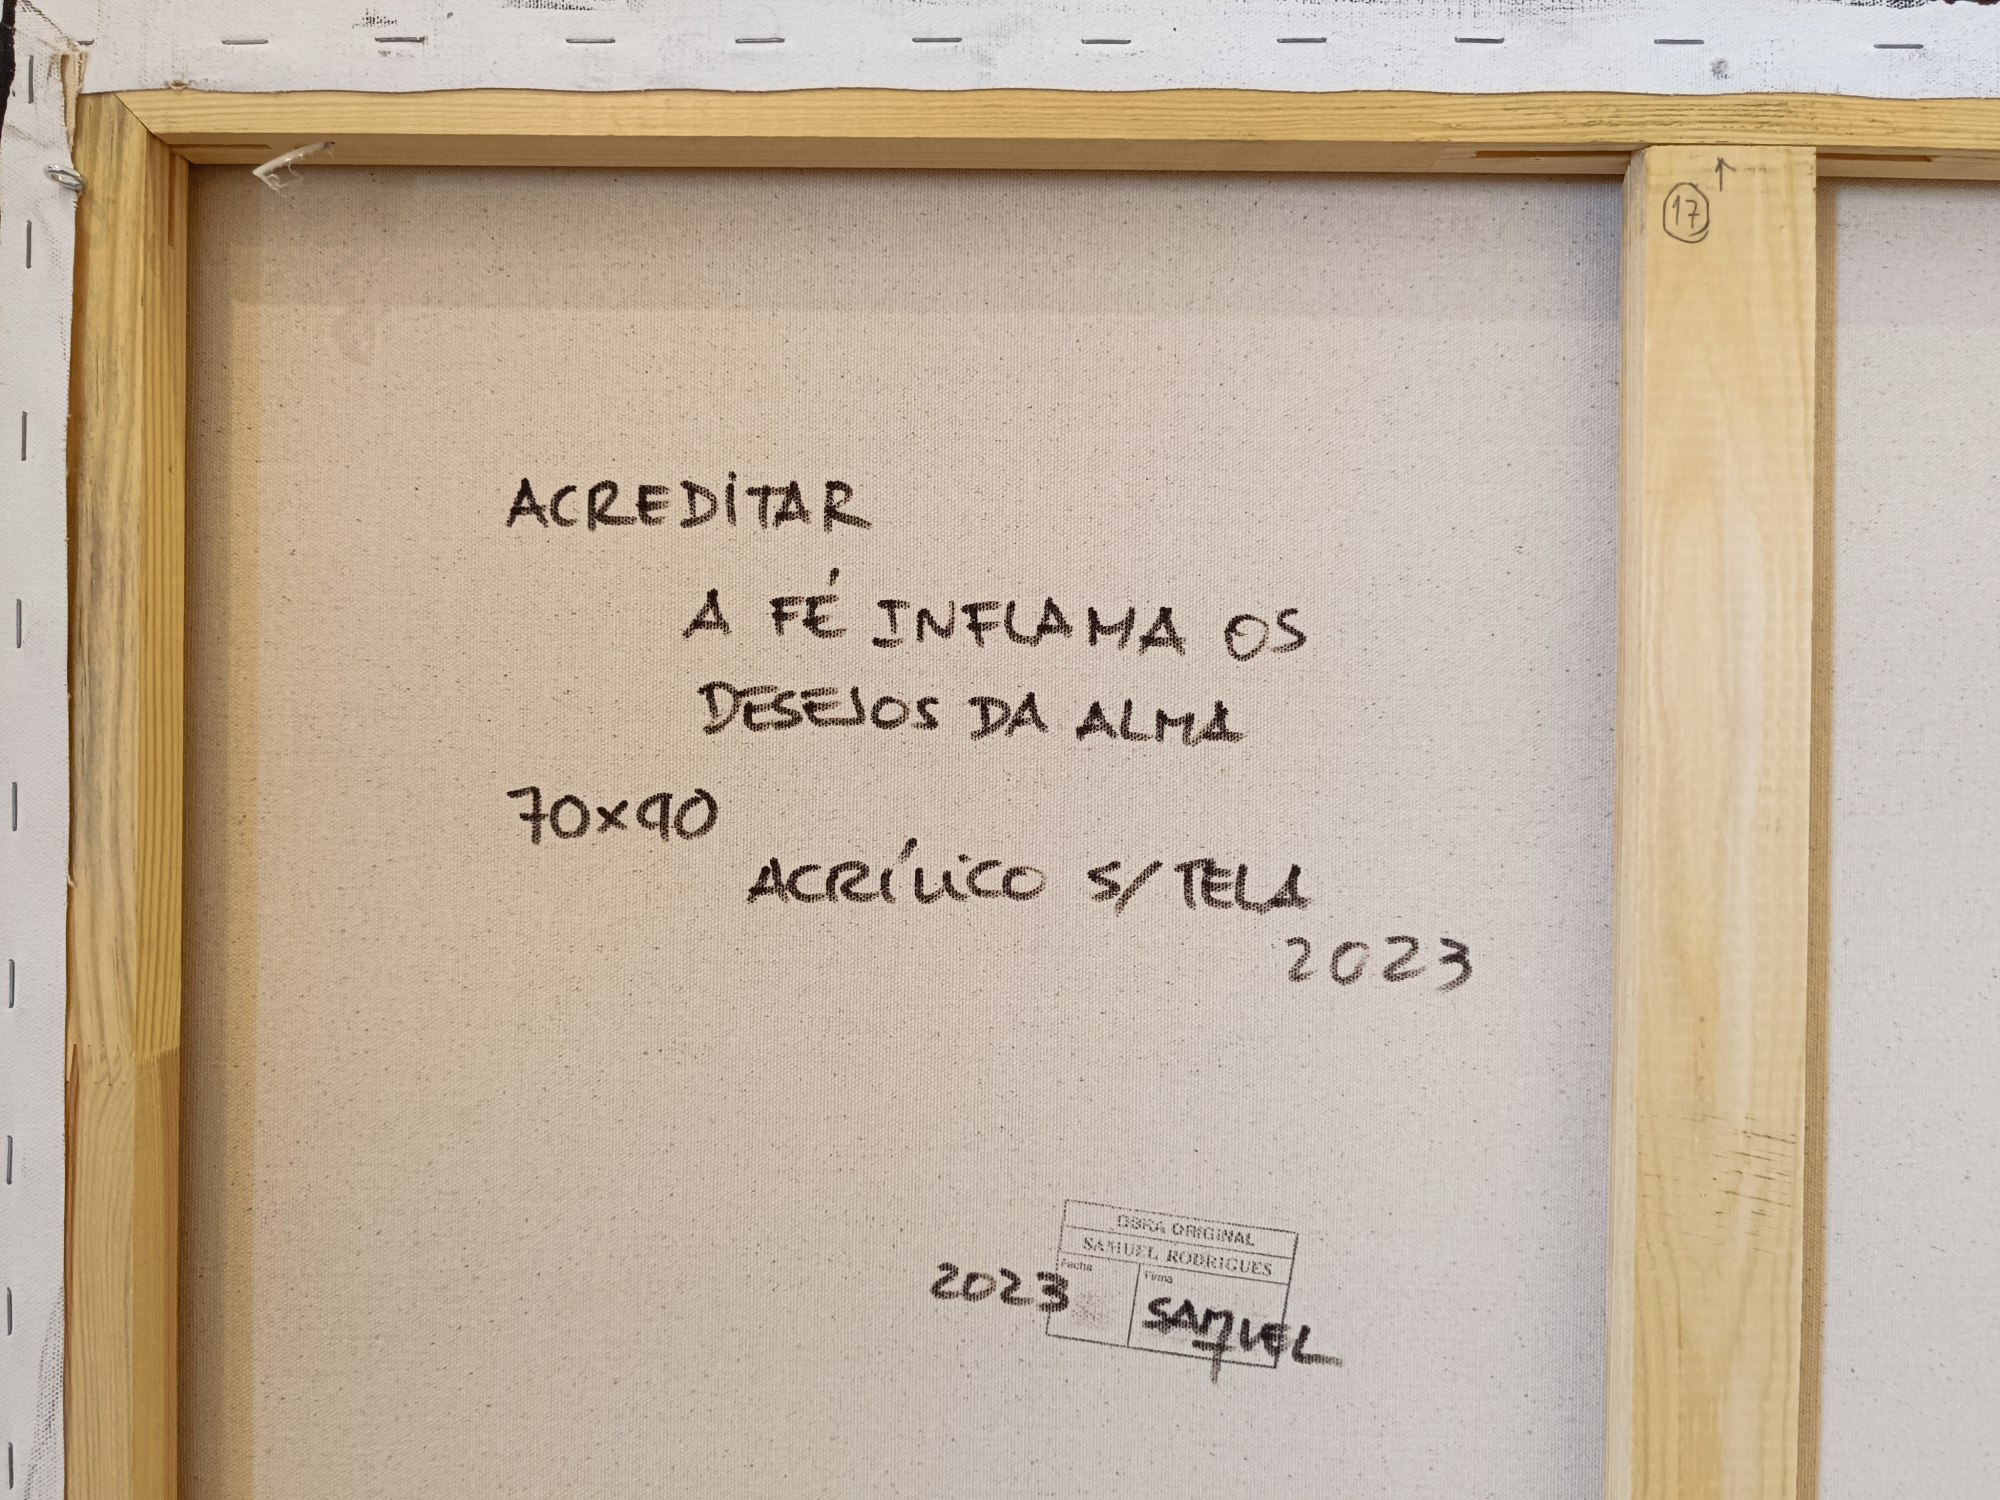 ↑
17
ACREDITAR
A FÉ INFLAMA OS
DESEJOS DA ALMA
70x90
ACRÍLICO S/ TELA
2023
OBRA ORIGINAL
SAMUEL RODRIGUES
Fecha Firma
2023 SAMUEL